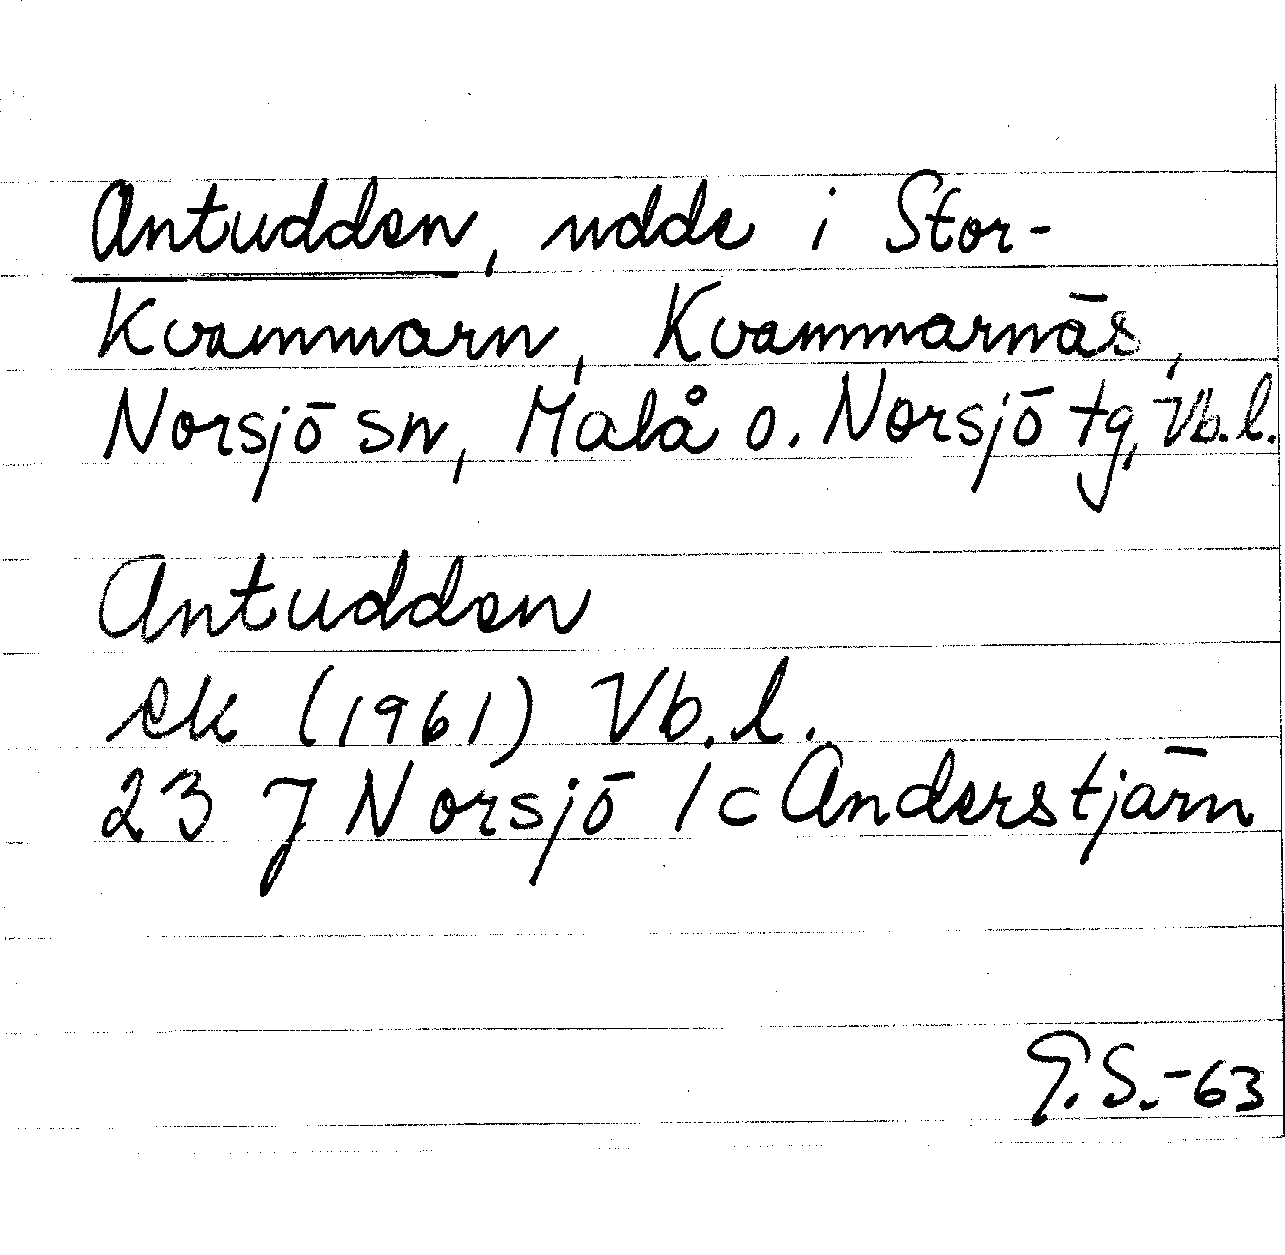 Antudden, udde i Stor-
Kvammarn, Kvammarnäs,
Norsjö sn, Malå o. Norsjö tg, Vb.l.
Antudden
ek (1961) Vb.l.
23 J Norsjö 1c Anderstjärn
G.S.-63